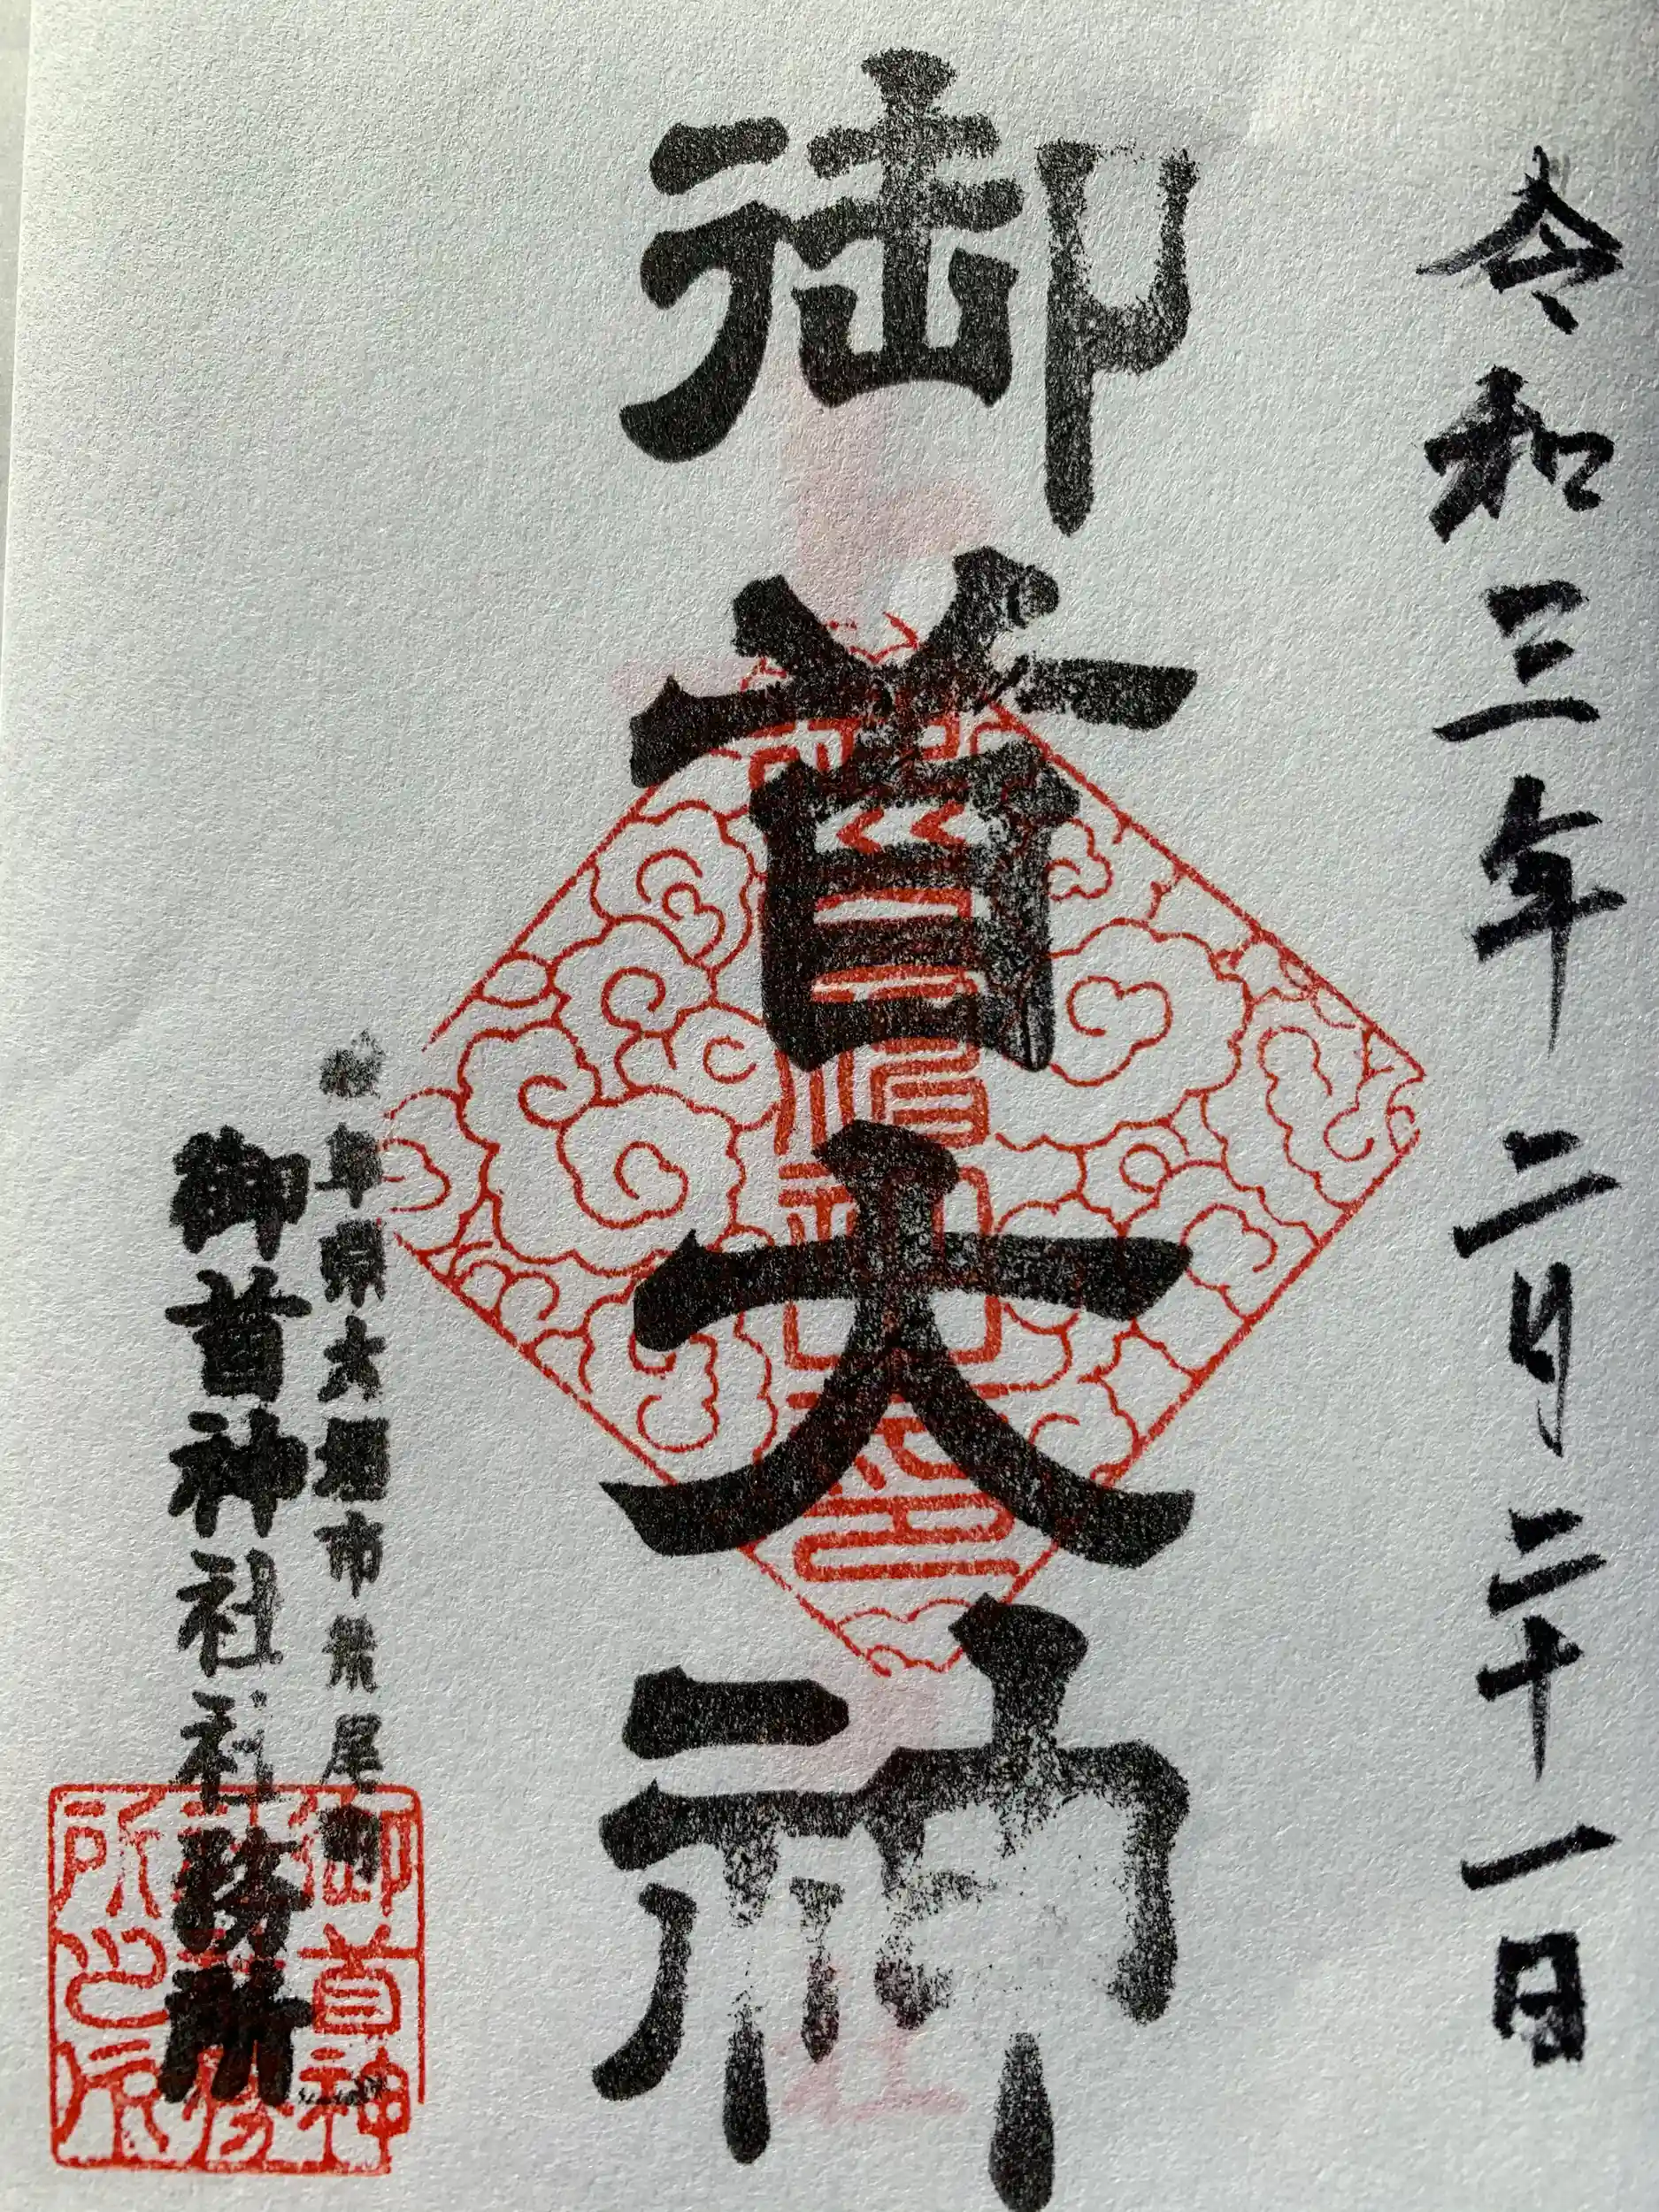 令和三年二月二十一日
御首大神
岐阜県大垣市荒尾町
御首神社社務所
御首神
所之印